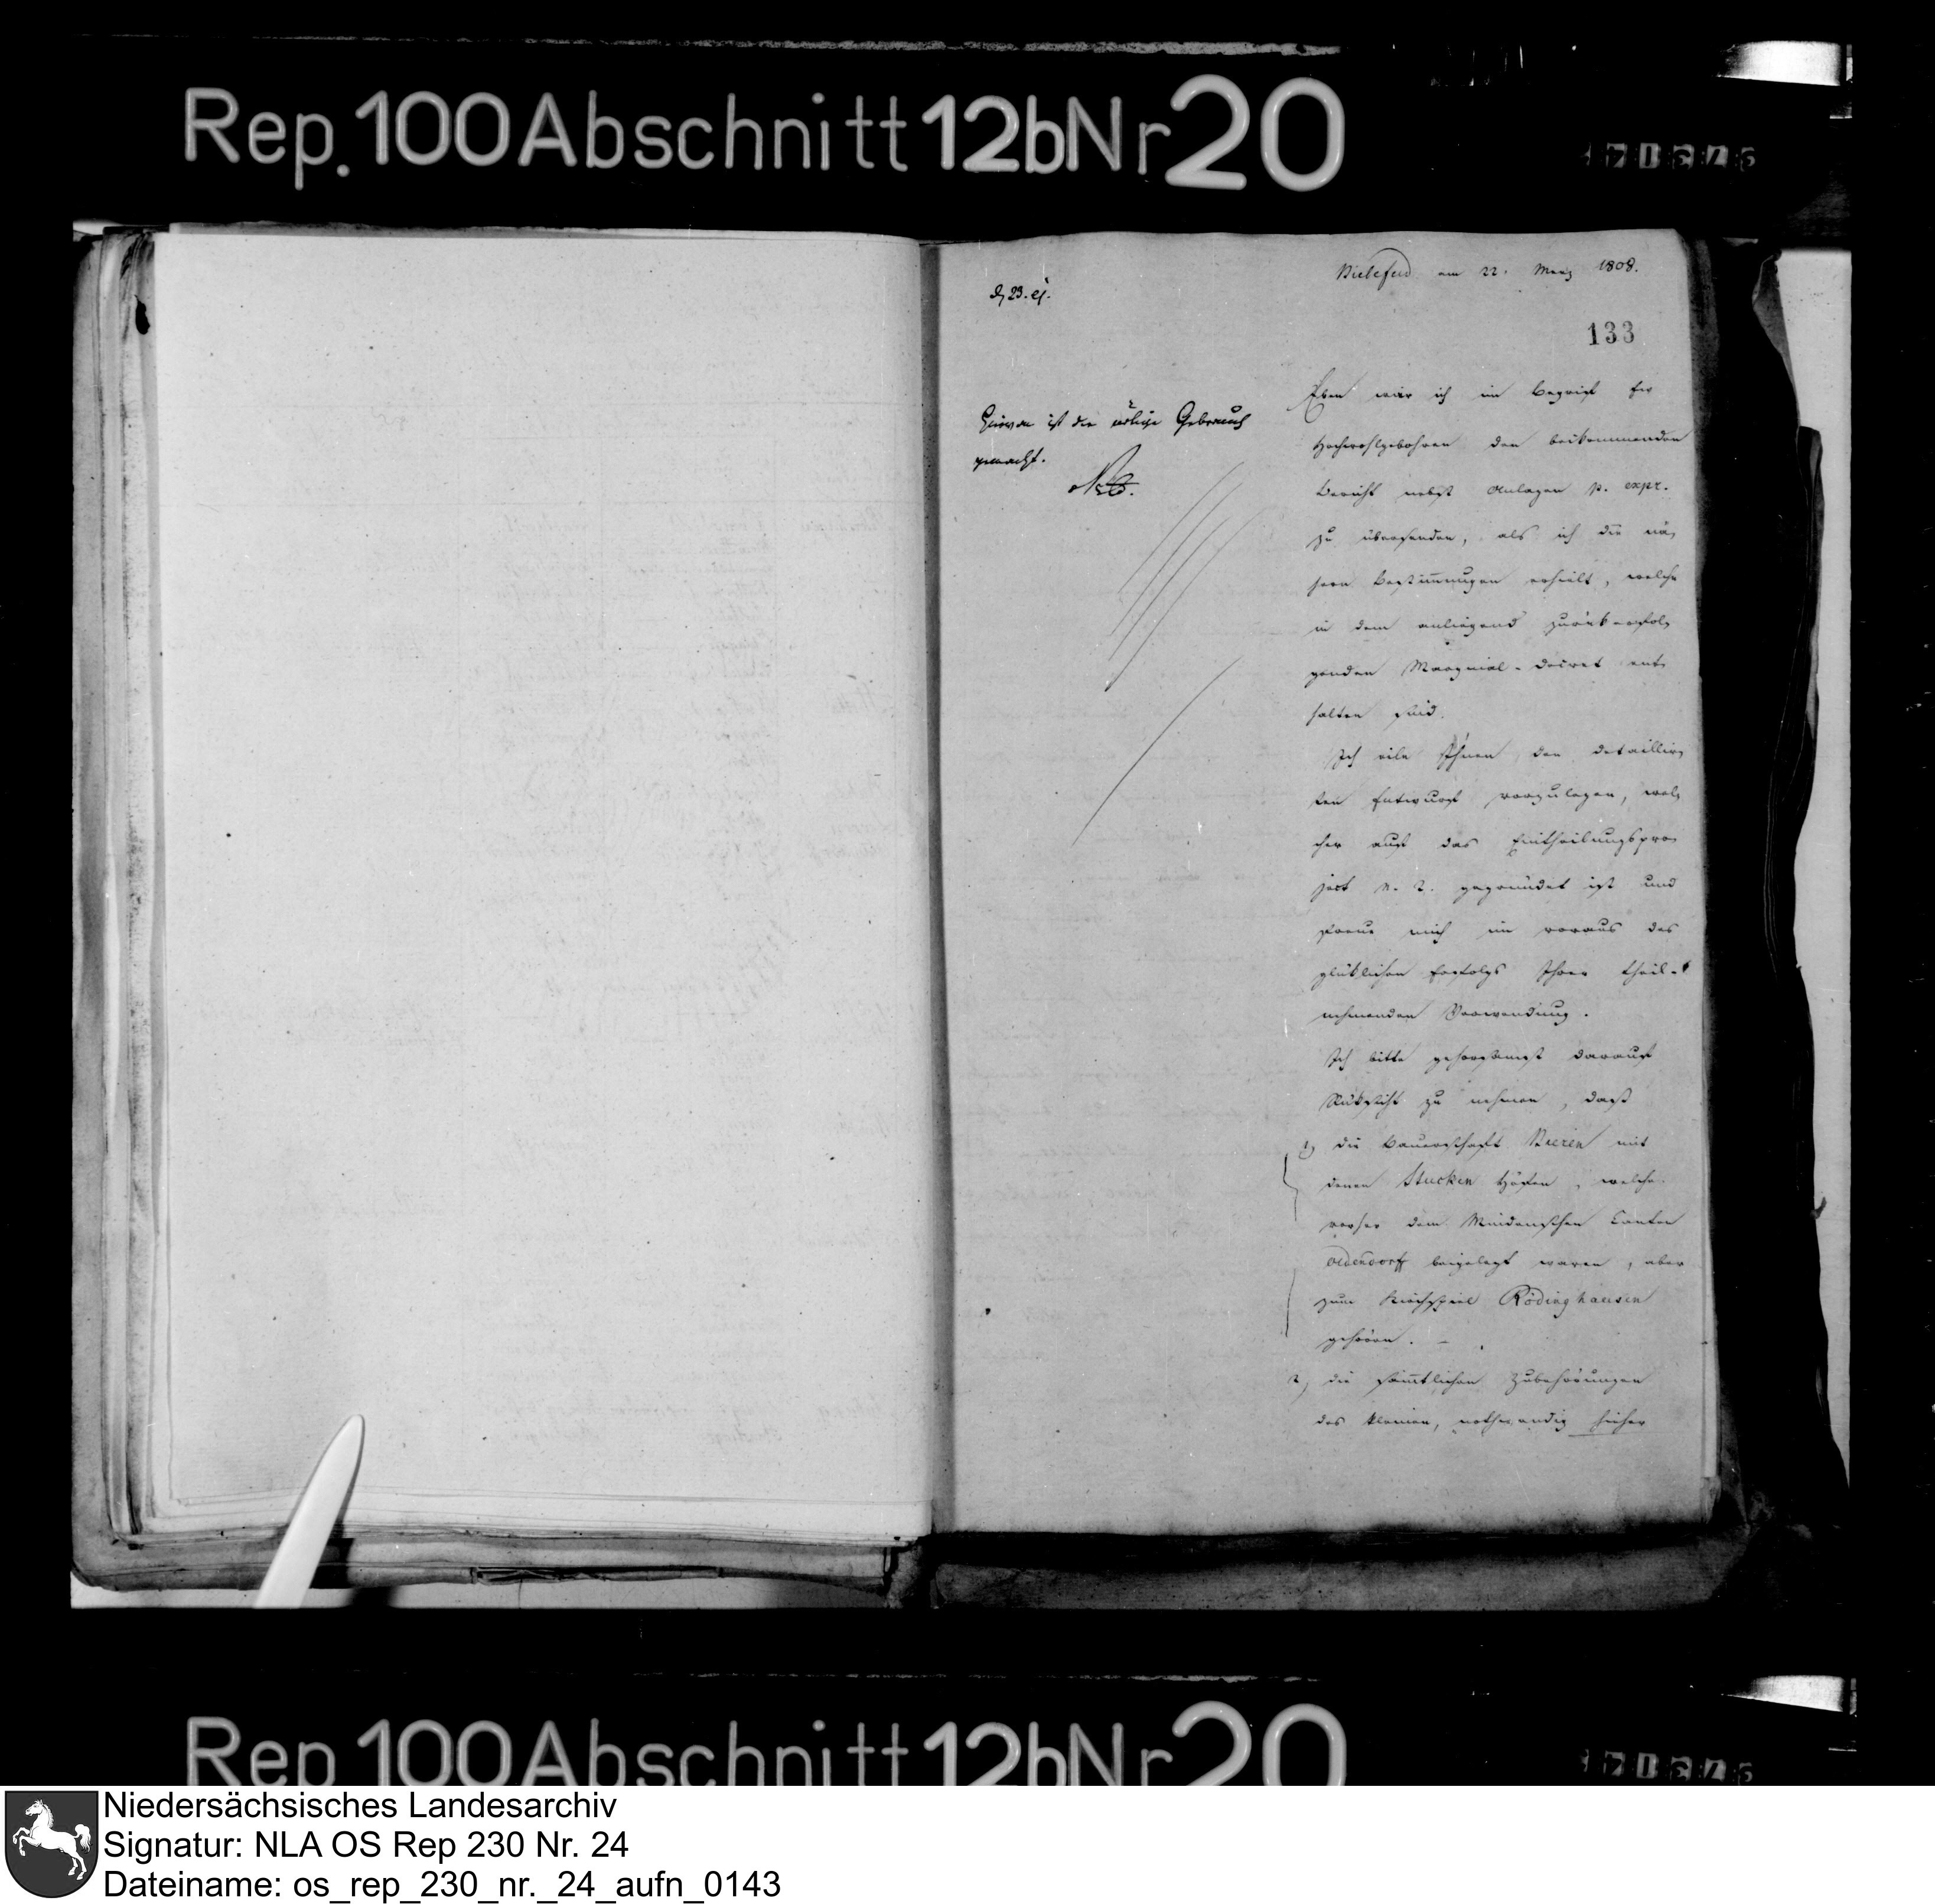 Rep.100Abschnitt12bNr20
Bielefeld am 22. März 1808.
d 23. ej.
133
Hiervon ist der Gebrauch
gemacht.
Eben war ich im Begrif Ew
Hochwohlgebohren den beikommenden
Bericht nebst Anlagen p. expr.
zu übersenden, als ich die nä-
hern Bestimungen erhielt, welche
in dem anliegend zurük erfol-
genden Marginal-Decret ent-
halten sind.
Ich eile Ihnen den detaillir-
ten Entwurf vorzulegen, wel-
cher auf das Eintheilungspro-
ject n. 2. gegründet ist und
freue mich im voraus des
glüklichen Erfolgs Ihrer theil-
nehmenden Verwendung.
Ich bitte gehorsamst darauf
Rüksicht zu nehmen, daß
1) die Bauerschaft Bieren mit
denen Stucken Höfen, welche
vorher dem Mindenschen Canton
Oldendorff beigelegt waren, aber
zum Kirchspiel Rödinghausen
gehören. -
2) die sämtlichen Zubehörungen
des kleinen, nothwendig hieher
Rep 100Abschnitt12bNr20
Niedersächsisches Landesarchiv
Signatur: NLA OS Rep 230 Nr. 24
Dateiname: os_rep_230_nr._24_aufn_0143